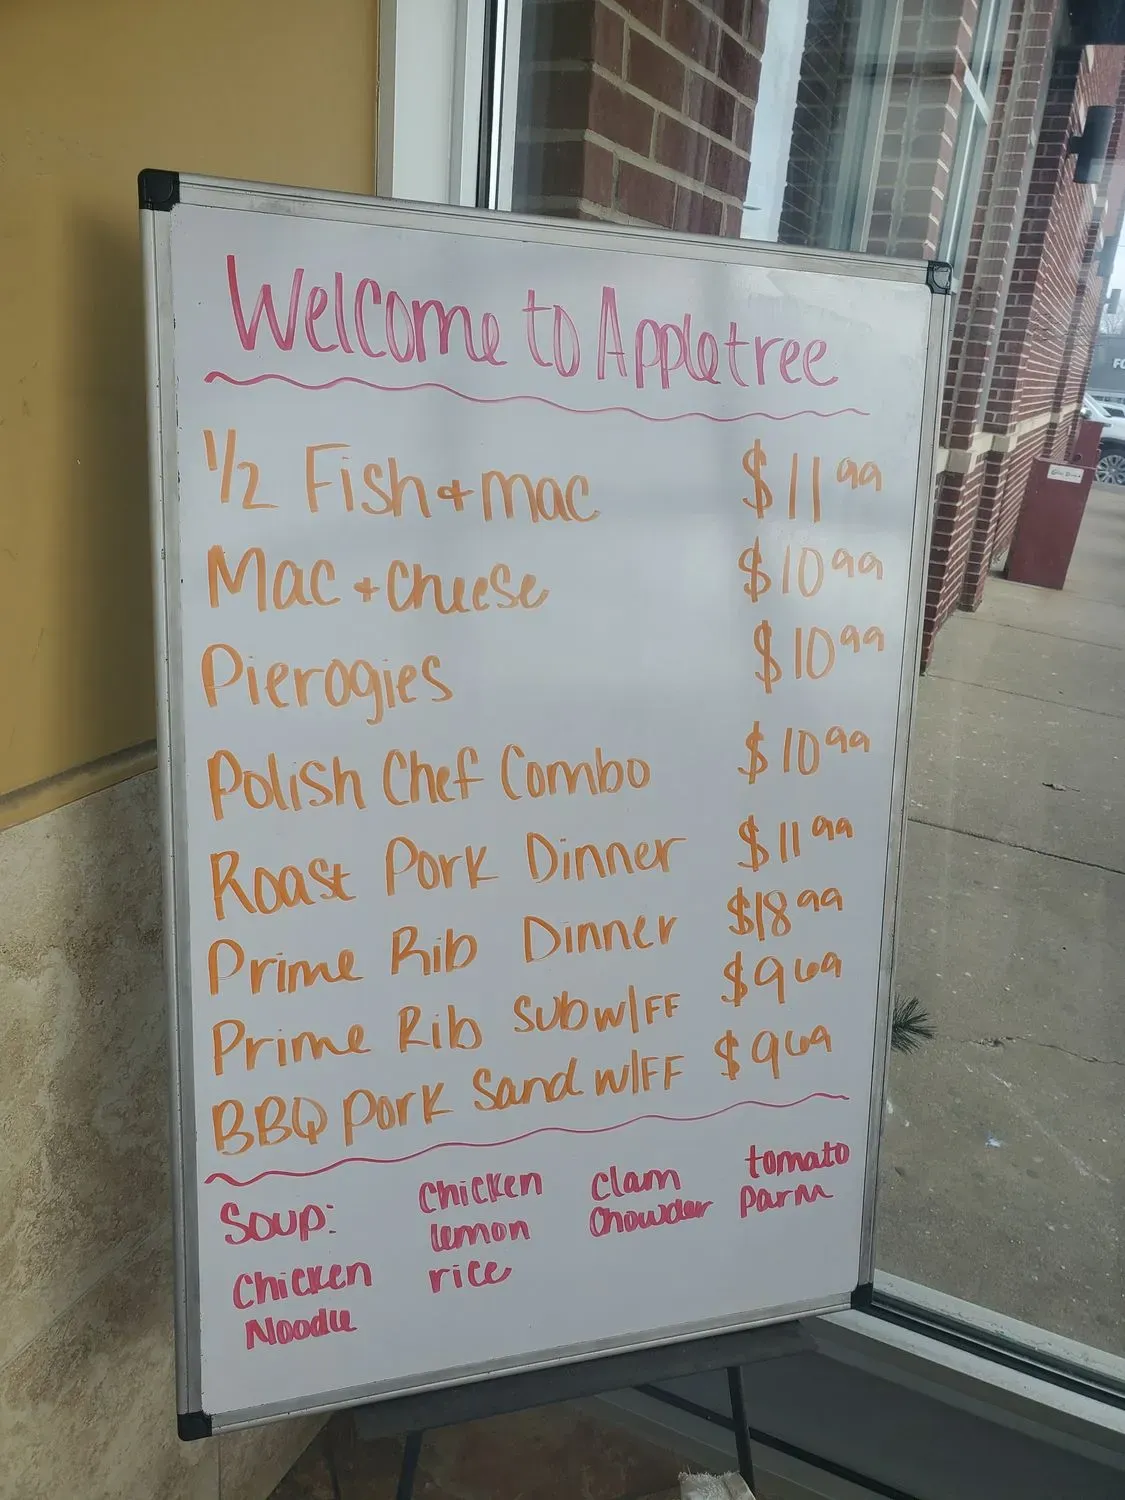 Welcome to Appletree
1/2 Fish + mac $11.99
Mac + Cheese $10.99
Pierogies $10.99
Polish Chef Combo $10.99
Roast Pork Dinner $11.99
Prime Rib Dinner $18.99
Prime Rib Sub w/FF $9.69
BBQ Pork Sand w/FF $9.69
Soup:
Chicken
Noodle
Chicken
lemon
rice
Clam
Chowder
tomato
parm